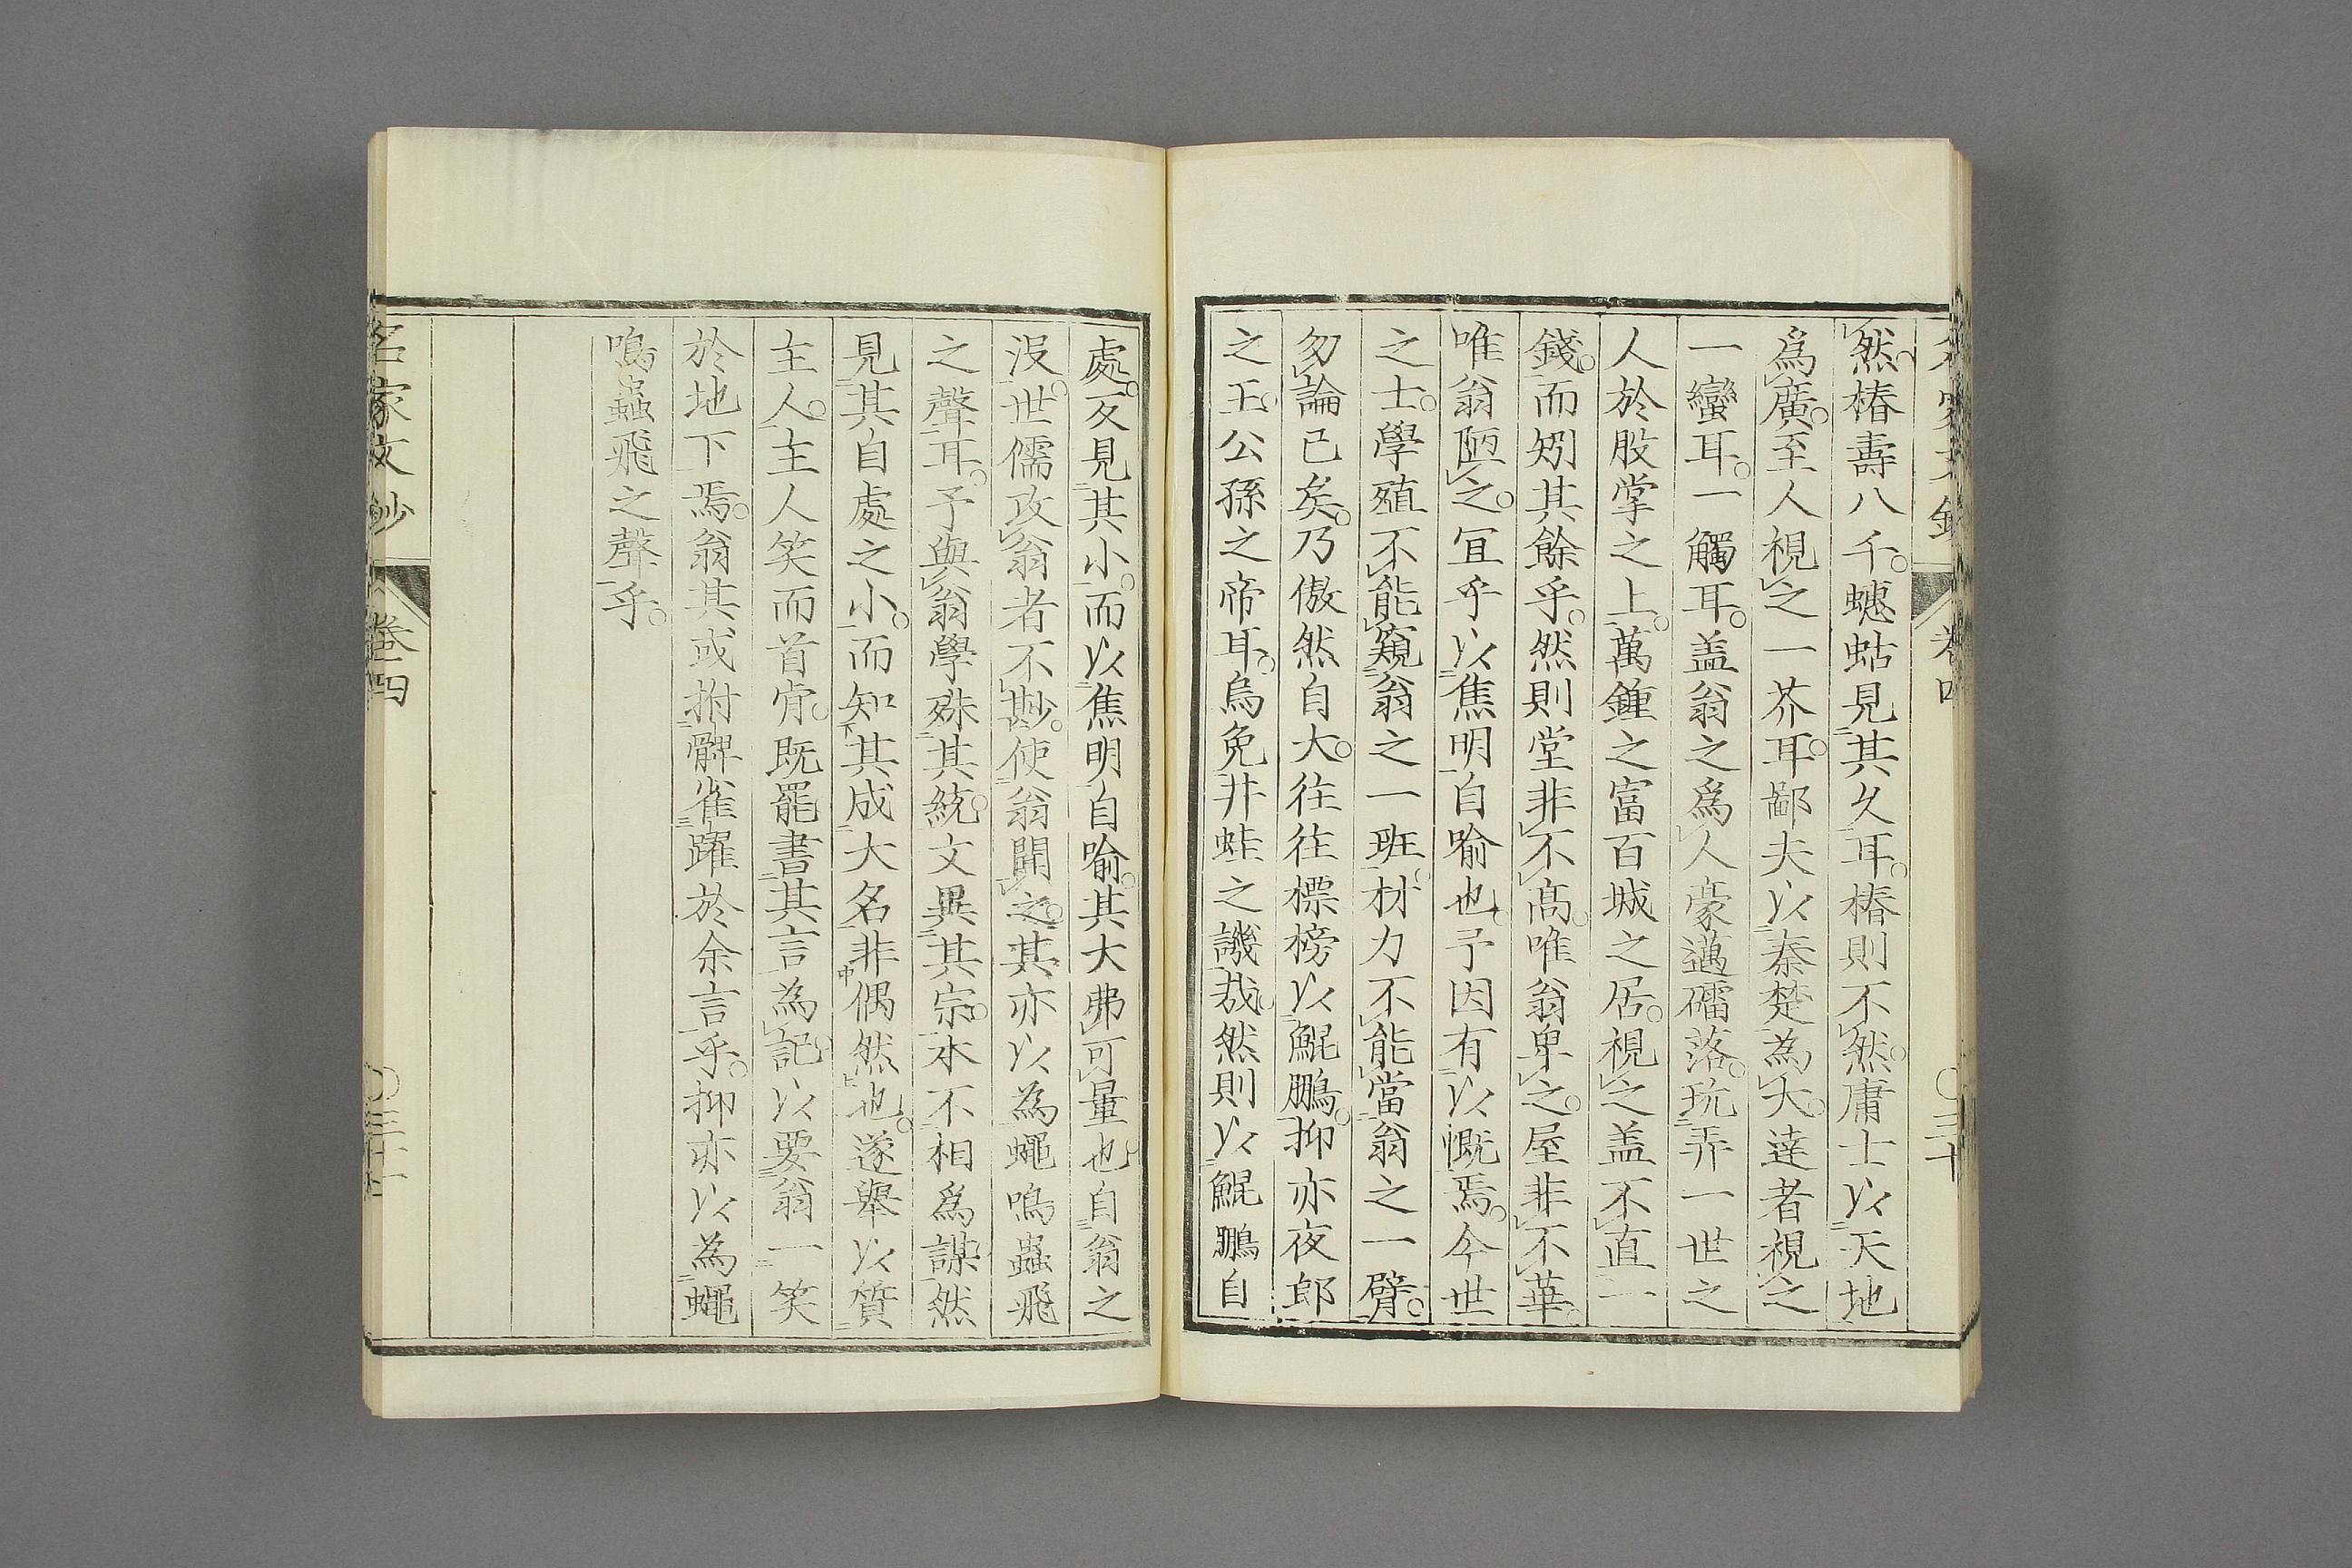 然椿壽八千蟪蛄見其久耳椿則不然庸士以天地
爲廣至人視之一芥耳鄙夫以秦楚為大達者視之
一蠻耳一觸耳盖翁之爲人豪邁礌落玩弄一世之
人於股掌之上萬鍾之富百城之居視之盖不直一
錢而矧其餘乎然則堂非不髙唯翁卑之屋非不華
唯翁陋之冝乎以焦明自喻也予因有以慨焉今世
之士學殖不能窺翁之一班材力不能當翁之一臂
勿論已矣乃傲然自大往往標榜以鯤鵬抑亦夜郎
之王公孫之帝耳烏免井蛙之譏哉然則以鯤鵬自
處反見其小而以焦明自喻其大弗可量也自翁之
没世儒攻翁者不尠使翁聞之其亦以為蠅鳴蟲飛
之聲耳予與翁學殊其統文異其宗本不相爲謀然
見其自處之小而知其成大名非偶然也遂舉以質
主人主人笑而首肯既罷書其言為記以要翁一笑
於地下焉翁其或拊髀雀躍於余言乎抑亦以為蠅
鳴蟲飛之聲乎
名家文鈔 卷四